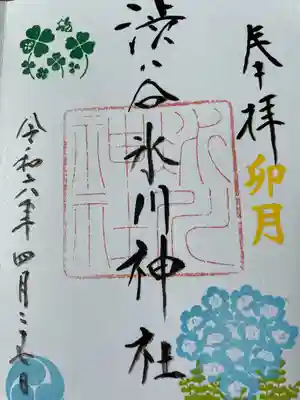 奉拝
卯月
渋谷氷川神社
氷川神社
令和六年四月二十七日